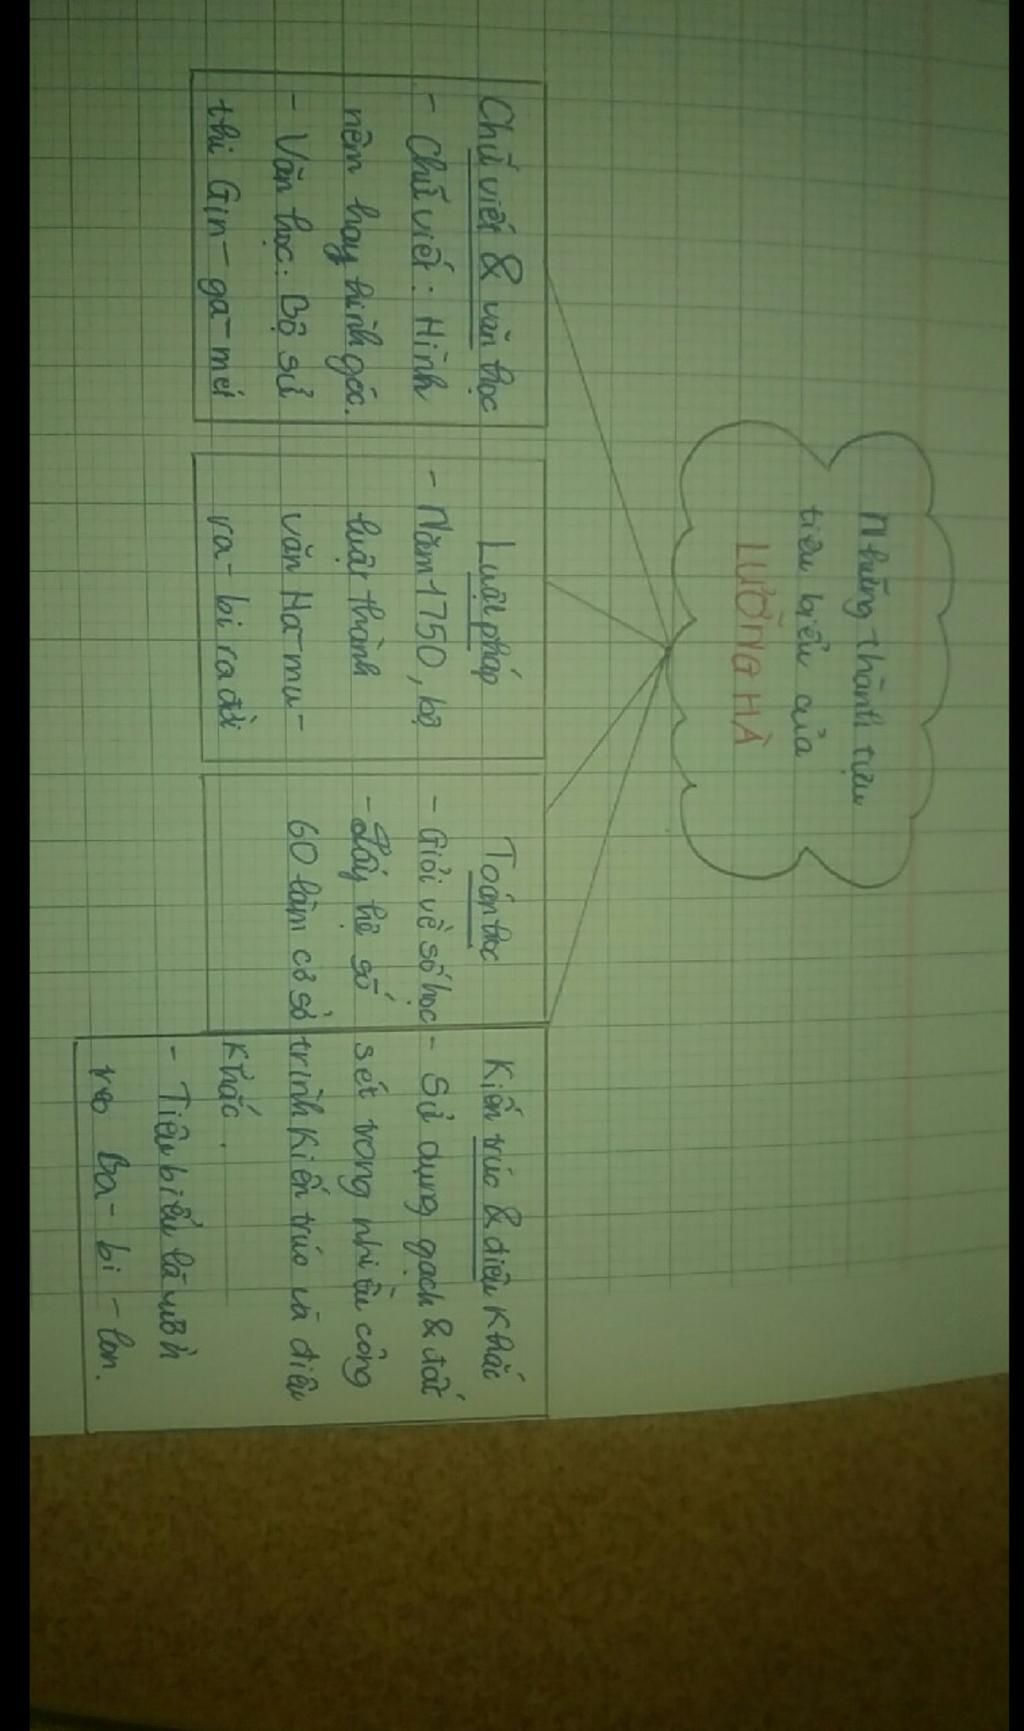 Những thành tựu
tiêu biểu của
LƯỠNG HÀ
Chữ viết & văn học
- Chữ viết: Hình
nêm hay hình góc.
- Văn học: Bộ sử
thi Gin-ga-mét
Luật pháp
- Năm 1750, bộ
luật thành
văn Ha-mu-
ra-bi ra đời
Toán học
- Giỏi về số học
- Lấy hệ số
60 làm cơ sở
Kiến trúc & điêu khắc
- Sử dụng gạch & đất
sét trong nhiều công
trình kiến trúc và điêu
khắc.
- Tiêu biểu là vườn
treo Ba-bi-lon.